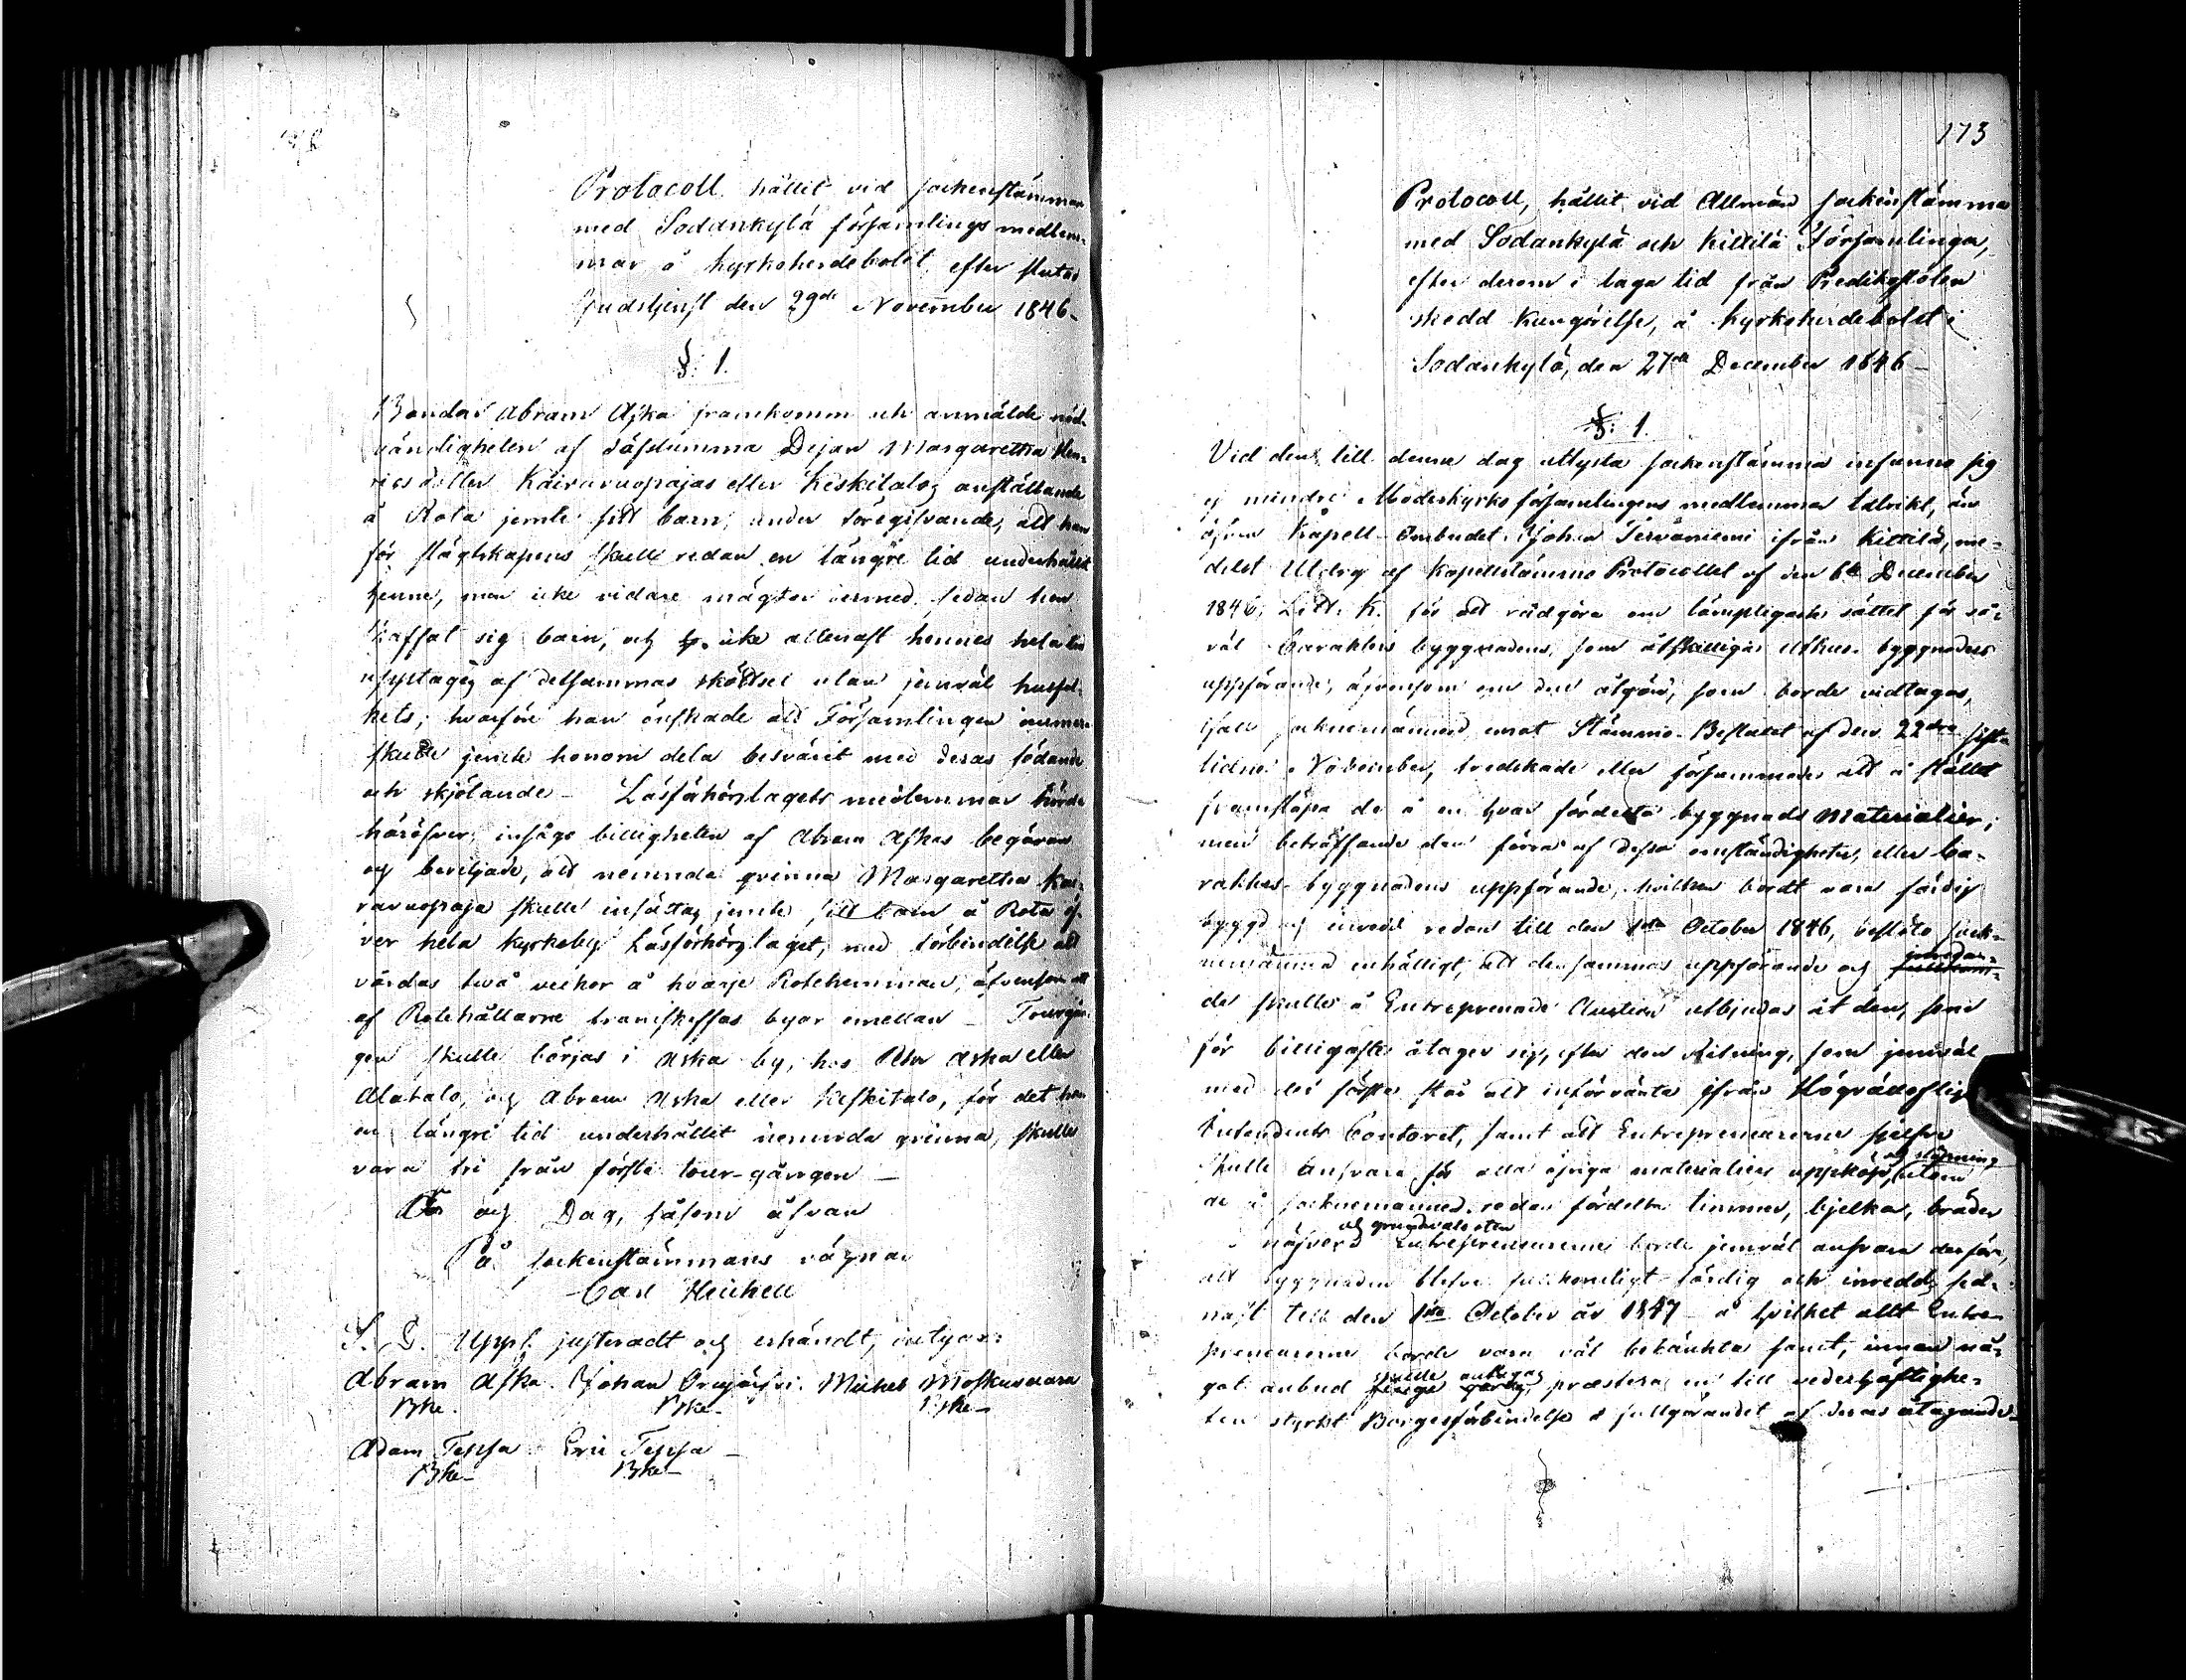 Protocoll hållit vid sockenstämman
med Sodankylä församlings medlem-
mar å kyrkoherdebolet, efter slutad
Gudstjenst den 29de November 1846.
§. 1.
Bonden Abram Aska framkom och anmälde nöd-
vändigheten af såfstumma Dejan Margaretha Hen-
ricsdotter Kairavuopajas eller Keskitalos anställande
å Rota jemte sitt barn, under föregifvande, att han
för slägtskapens skull redan en längre tid underhållit
henne, men icke vidare mägtar dermed, sedan hon
skaffat sig barn, och icke allenast hennes hela tid
upptages af detsammas skötsel utan jemväl husfol-
kets; hvarföre han önskade att Församlingen
skulle jemte honom dela besväret med deras födande
och skjötande – Läsförhörslagets medlemmar hörde
häröfver, insågo billigheten af Abram Askas begäran
och beviljade, att nemnda qvinna Margaretha Kai-
ravuopaja skulle insättas jemte sitt barn å Rota öf-
ver hela Kyrkoby Läsförhörslaget, med förbindelse att
vårdas två veckor å hvarje Rotehemman, äfvensom att
af Rotehållarne transkaffas byar emellan – Tourgån-
gen skulle börjas i Aska by, hos Petr Aska eller
Alatalo, och Abram Aska eller Keskitalo, för det han
en längre tid underhållit nemnda qvinna, skulle
vara fri från första tour-gången –
År och Dag, såsom äfvan
På sockenstämmans vägnar
Carl Heickell
S. D. uppl. justeradt och erkändt, intygar:
Abram Aska. Johan Orajärvi. Michel Moskuvaara
Bke. Bke. Bke –
Adam Teppa Eric Teppa –
Bke – Bke –
173
Protocoll, hållit vid Allmän sockenstämma
med Sodankylä och Kittilä Församlingar,
efter derom i laga tid från Predikostolen
skedd Kungörelse, å Kyrkoherdebolet i
Sodankylä, den 27de December 1846 –
§. 1.
Vid den till denna dag utlysta sockenstämma infunno sig
ej mindre Moderkyrko församlingens medlemmar talrikt, än
äfven Kapell-Ombudet Johan Tervaniemi ifrån Kittilä, me-
delst Utdrag af Kapellstämmo Protocollet af den 6te December
1846, Litt. K. för att rådgöra om lämpligaste sättet för så-
väl Barakkens byggnadens, som åtskilliga uthus byggnaders
uppförande, äfvensom om den åtgärd, som borde vidtagas,
ifall socknemännen emot Stämmo-Beslutet af den 22dra sist-
lidne November, tredskade eller försummade att å stället
framsläpa de å en hvar fördelta byggnads Materialier;
men beträffande den förra af dessa omständigheter, eller Ba-
rakkes-byggnadens uppförande, hvilken bordt vara färdig
byggd och inredd redan till den 1sta October 1846, beslöto sock-
nemännen enhälligt, att densammas uppförande och inredan-
de skulle å Entreprenade Auction utbjudas åt den, som
för billigaste åtager sig, efter den Ritning, som jemväl
med det första står att införvänta ifrån Högvälloflige
Intendents Contoret, samt att Entreprenererne sjelfve
skulle ansvara för alla öfriga materialiers uppköp, utom
de å socknemännen redan fördelta timmer, bjelkar, bräder
och grundvalsstenar
näfver. Entreprenererne borde jemväl ansvara derföre,
att byggnaden blefve fullkomligt färdig och inredd, sed-
nast till den 1sta October år 1847 – å hvilket allt Entre-
prenererne borde vara väl betänkta samt, innan nå-
got anbud skulle antagas, præstera en till vederhäftighe-
ten styrkt Borgesförbindelse å fullgörandet af deras åtagande.